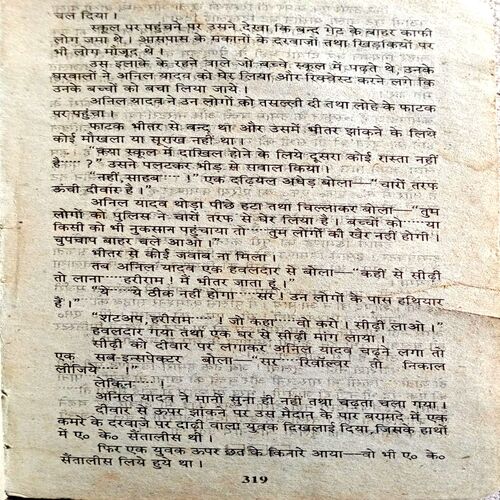 चल दिया।
स्कूल पर पहुंचने पर उसने देखा कि बन्द गेट के बाहर काफी
लोग जमा थे। आसपास के मकानों के दरवाजों तथा खिड़कियों पर
भी लोग मौजूद थे।
उस इलाके के रहने वाले जो बच्चे स्कूल में पढ़ते थे, उनके
घरवालों ने अनिल यादव को घेर लिया और रिक्वेस्ट करने लगे कि
उनके बच्चों को बचा लिया जाये।
अनिल यादव ने उन लोगों को तसल्ली दी तथा लोहे के फाटक
पर पहुंचा।
फाटक भीतर से बन्द था और उसमें भीतर झांकने के लिये
कोई मोखला या सूराख नहीं था।
"क्या स्कूल में दाखिल होने के लिये दूसरा कोई रास्ता नहीं
है·····?" उसने पलटकर भीड़ से सवाल किया।
"नहीं, साहब·····।" एक दढ़ियल अधेड़ बोला—"चारों तरफ
ऊंची दीवार है।"
अनिल यादव थोड़ा पीछे हटा तथा चिल्लाकर बोला—"तुम
लोगों को पुलिस ने चारों तरफ से घेर लिया है। बच्चों को·····या
किसी को भी नुकसान पहुंचाया तो·····तुम लोगों की खैर नहीं होगी।
चुपचाप बाहर चले आओ।"
भीतर से कोई जवाब ना मिला।
तब अनिल यादव एक हवलदार से बोला—"कहीं से सीढ़ी
तो लाना·····हरीराम! मैं भीतर जाता हूं।"
"ये·····ये ठीक नहीं होगा·····सर। उन लोगों के पास हथियार
हैं।"
"शटअप, हरीराम·····। जो कहा·····वो करो। सीढ़ी लाओ।"
हवलदार गया तथा एक घर से सीढ़ी मांग लाया।
सीढ़ी को दीवार पर लगाकर अनिल यादव चढ़ने लगा तो
एक सब-इन्सपेक्टर बोला—"सर·····रिवॉल्वर तो निकाल
लीजिये·····।"
लेकिन·····।
अनिल यादव ने मानों सुना ही नहीं तथा चढ़ता चला गया।
दीवार से ऊपर झांकने पर उसे मैदान के पार बरामदे में एक
कमरे के दरवाजे पर दाढ़ी वाला युवक दिखलाई दिया, जिसके हाथों
में ए० के० सैंतालीस थी।
फिर एक युवक ऊपर छत के किनारे आया—वो भी ए० के०
सैंतालीस लिये हुये था।
319